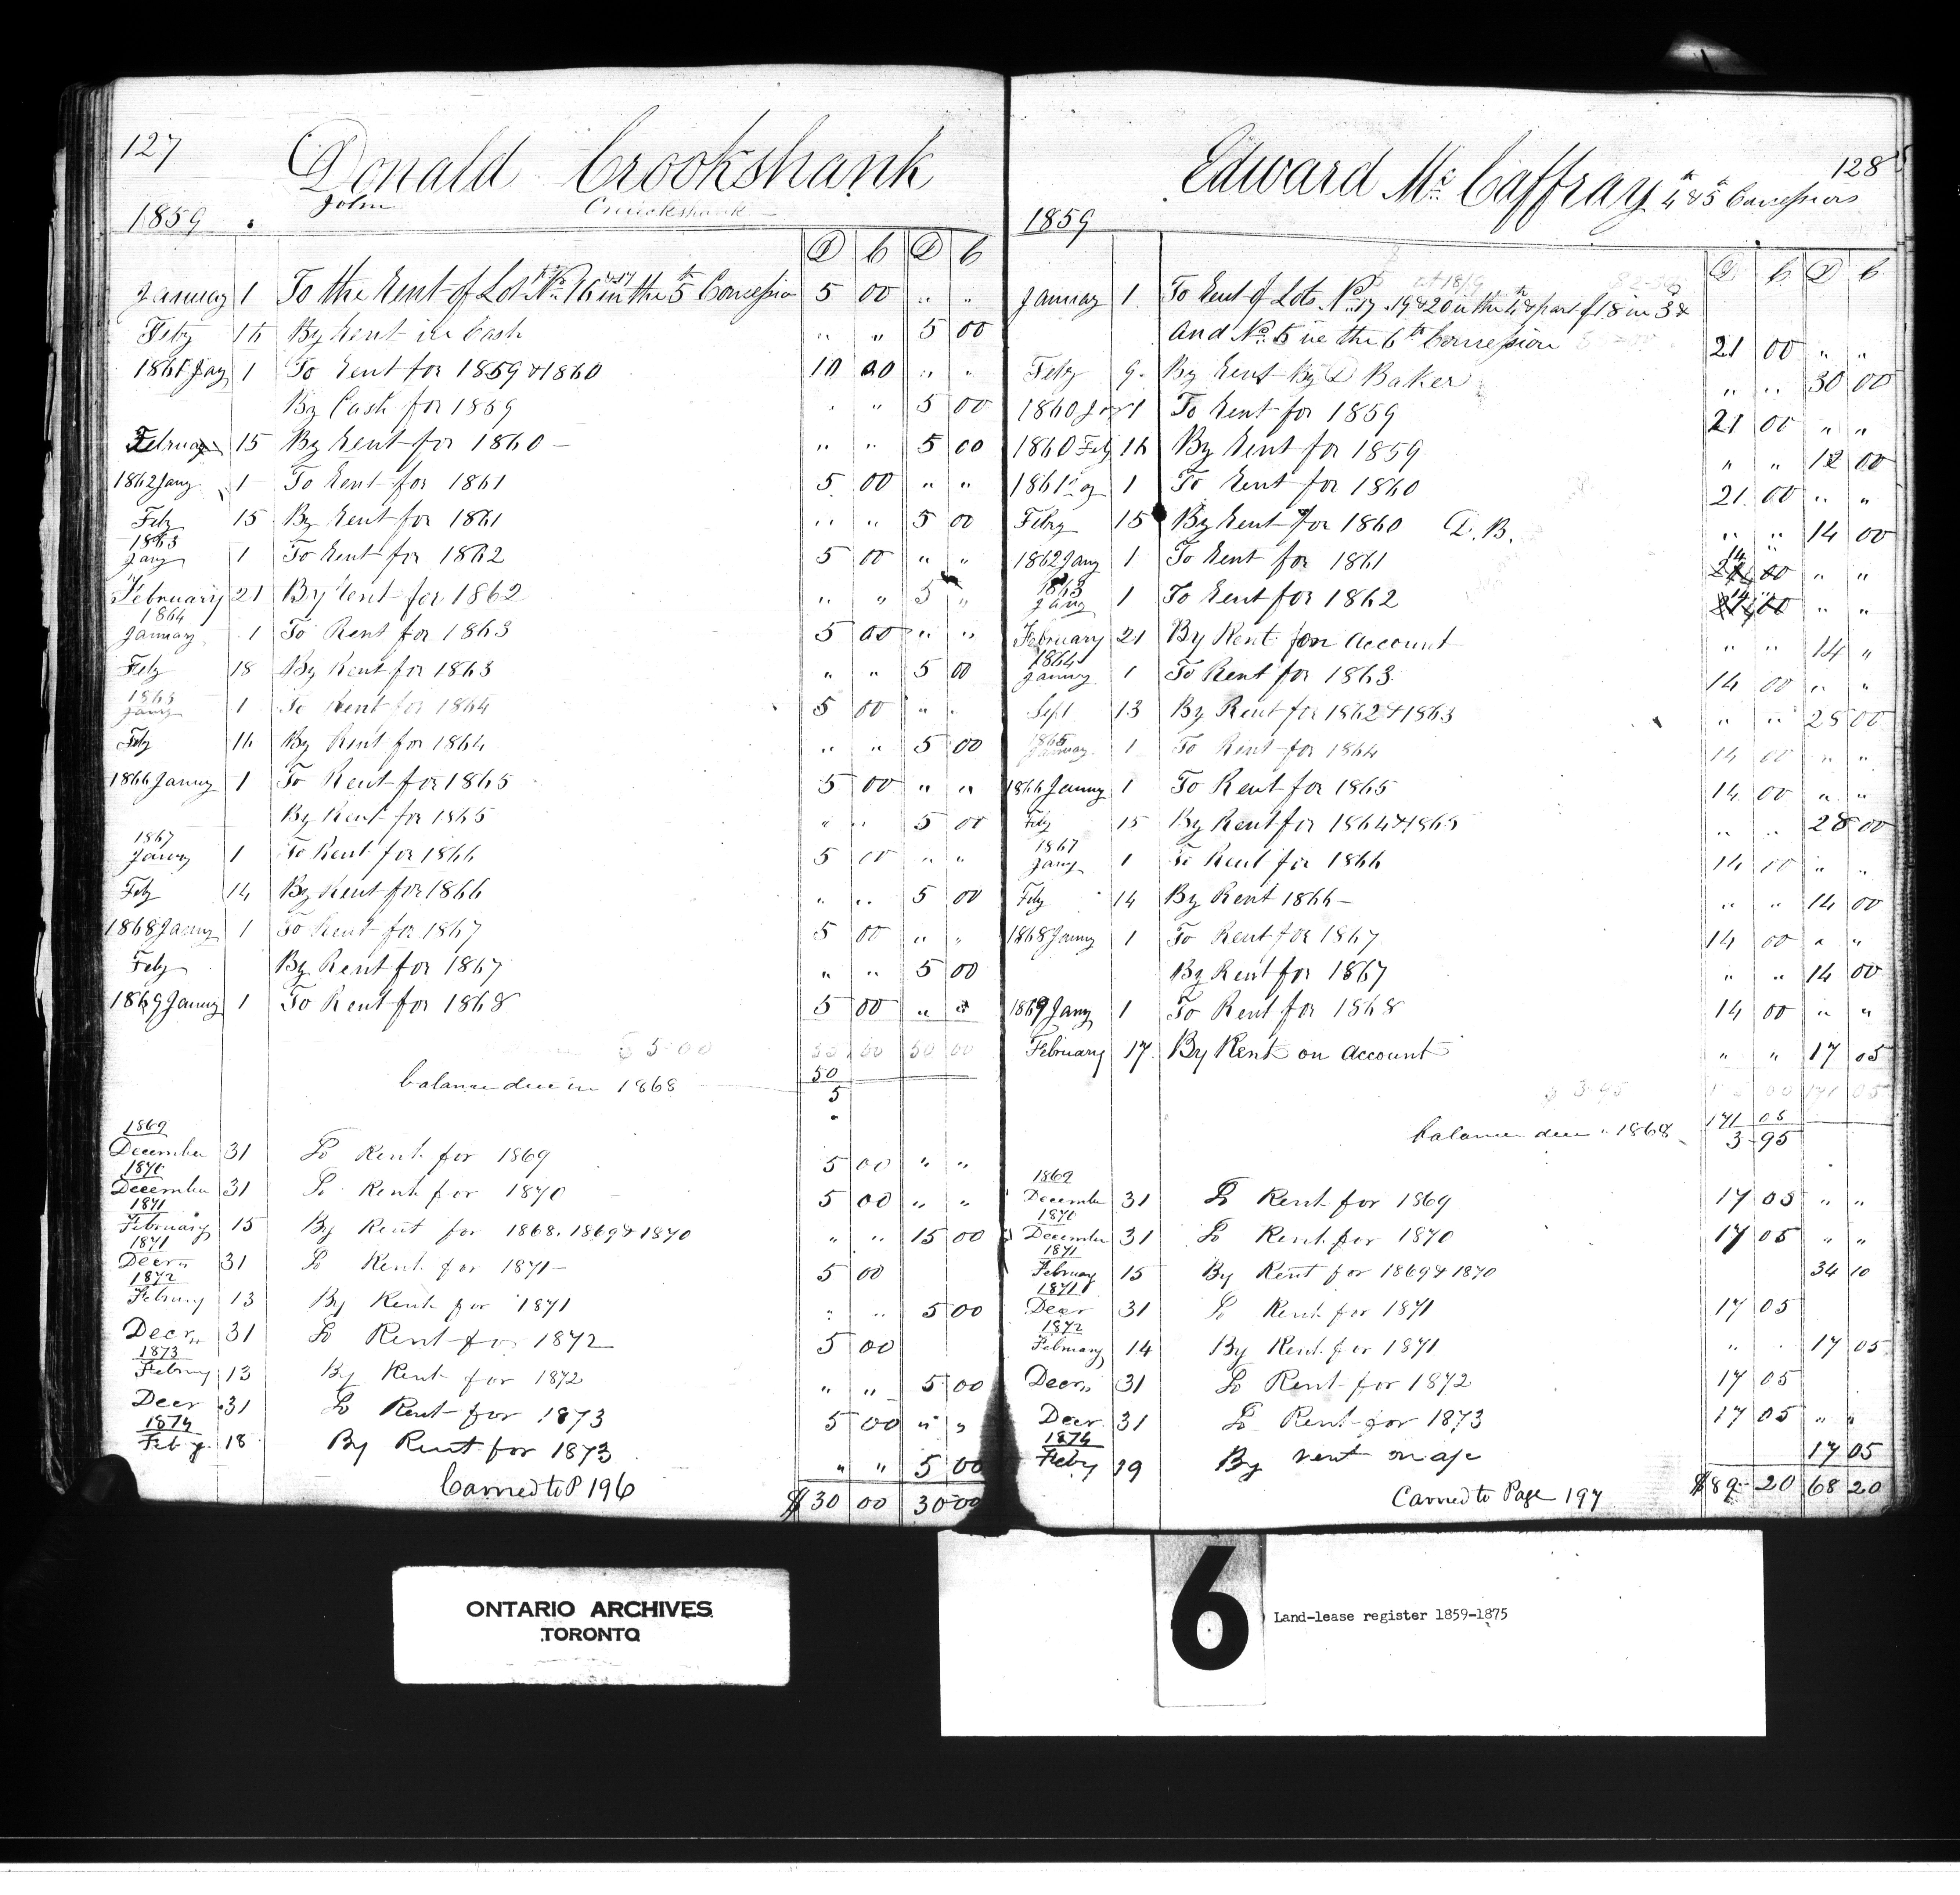 127
Donald Crookshank
John Cruickshank
1859
D C D C
January 1 To the Rent of Lot No. 16 in the 5th Concession 5 00 " "
Feby 16 By Rent in Cash " " 5 00
1861 Jay 1 To Rent for 1859 & 1860 10 00 " "
By Cash for 1859 " " 5 00
February 15 By Rent for 1860 - " " 5 00
1862 Jany 1 To Rent for 1861 5 00 " "
Feby 15 By Rent for 1861 " " 5 00
1863
Jany 1 To Rent for 1862 5 00 " "
February 21 By Rent for 1862 " " 5 "
1864
January 1 To Rent for 1863 5 00 " "
Feby 18 By Rent for 1863 " " 5 00
1865
Jany 1 To Rent for 1864 5 00 " "
Feby 16 By Rent for 1864 " " 5 00
1866 Janny 1 To Rent for 1865 5 00 " "
By Rent for 1865 " " 5 00
1867
Janny 1 To Rent for 1866 5 00 " "
Feby 14 By Rent for 1866 " " 5 00
1868 Janny 1 To Rent for 1867 5 00 " "
Feby By Rent for 1867 " " 5 00
1869 Janny 1 To Rent for 1868 5 00 " "
$5.00 55 00 50 00
50
balance due in 1868 5
1869
December 31 To Rent for 1869 5 00 " "
1870
December 31 To Rent for 1870 5 00 " "
1871
February 15 By Rent for 1868, 1869 & 1870 " " 15 00
1871
Decr 31 To Rent for 1871 - 5 00
1872
Februay 13 By Rent for 1871 " " 5 00
Decr 31 To Rent for 1872 5 00
1873
Februy 13 By Rent for 1872 " " 5 00
Decr 31 To Rent for 1873 5 00 " "
1874
Feby 18 By Rent for 1873 " " 5 00
Carried to P 196 $30 00 30 00
128
Edward McCaffray 4th & 5th Concessions
1859
D C D C
January 1 To Rent of Lots No. 17, 19 & 20 in the 4th & part of 18 in 3d
and No. 5 in the 6th Concession 21 00 " "
Feby 9 By Rent By D Baker " " 30 00
1860 Jay 1 To Rent for 1859 21 00 " "
1860 Feby 16 By Rent for 1859 " " 12 00
1861 Jay 1 To Rent for 1860 21 00 " "
Febry 15 By Rent for 1860 D. B. " " 14 00
1862 Jany 1 To Rent for 1861 14 " " "
1863
Jany 1 To Rent for 1862 14 " " "
February 21 By Rent on account " " 14 "
1864
Janny 1 To Rent for 1863 14 00 " "
Sept 13 By Rent for 1862 & 1863 " " 28 00
1865
January 1 To Rent for 1864 14 00 " "
1866 Janny 1 To Rent for 1865 14 00 " "
Feby 15 By Rent for 1864 & 1865 " " 28 00
1867
Jany 1 To Rent for 1866 14 00 " "
Feby 14 By Rent 1866 - " " 14 00
1868 Janny 1 To Rent for 1867 14 00 " "
By Rent for 1867 " " 14 00
1869 Jany 1 To Rent for 1868 14 00 " "
February 17 By Rent on account " " 17 05
3.95 00 171 05
171 05
balance due in 1868 3 95
1869
December 31 To Rent for 1869 17 05 " "
1870
December 31 To Rent for 1870 17 05 " "
1871
February 15 By Rent for 1869 & 1870 34 10
1871
Decr 31 To Rent for 1871 17 05
1872
February 14 By Rent for 1871 " " 17 05
Decr 31 To Rent for 1872 17 05
Decr 31 To Rent for 1873 17 05 " "
1874
Feby 19 By rent on a/c 17 05
Carried to Page 197 $89 20 68 20
ONTARIO ARCHIVES
TORONTO
6
Land-lease register 1859-1875